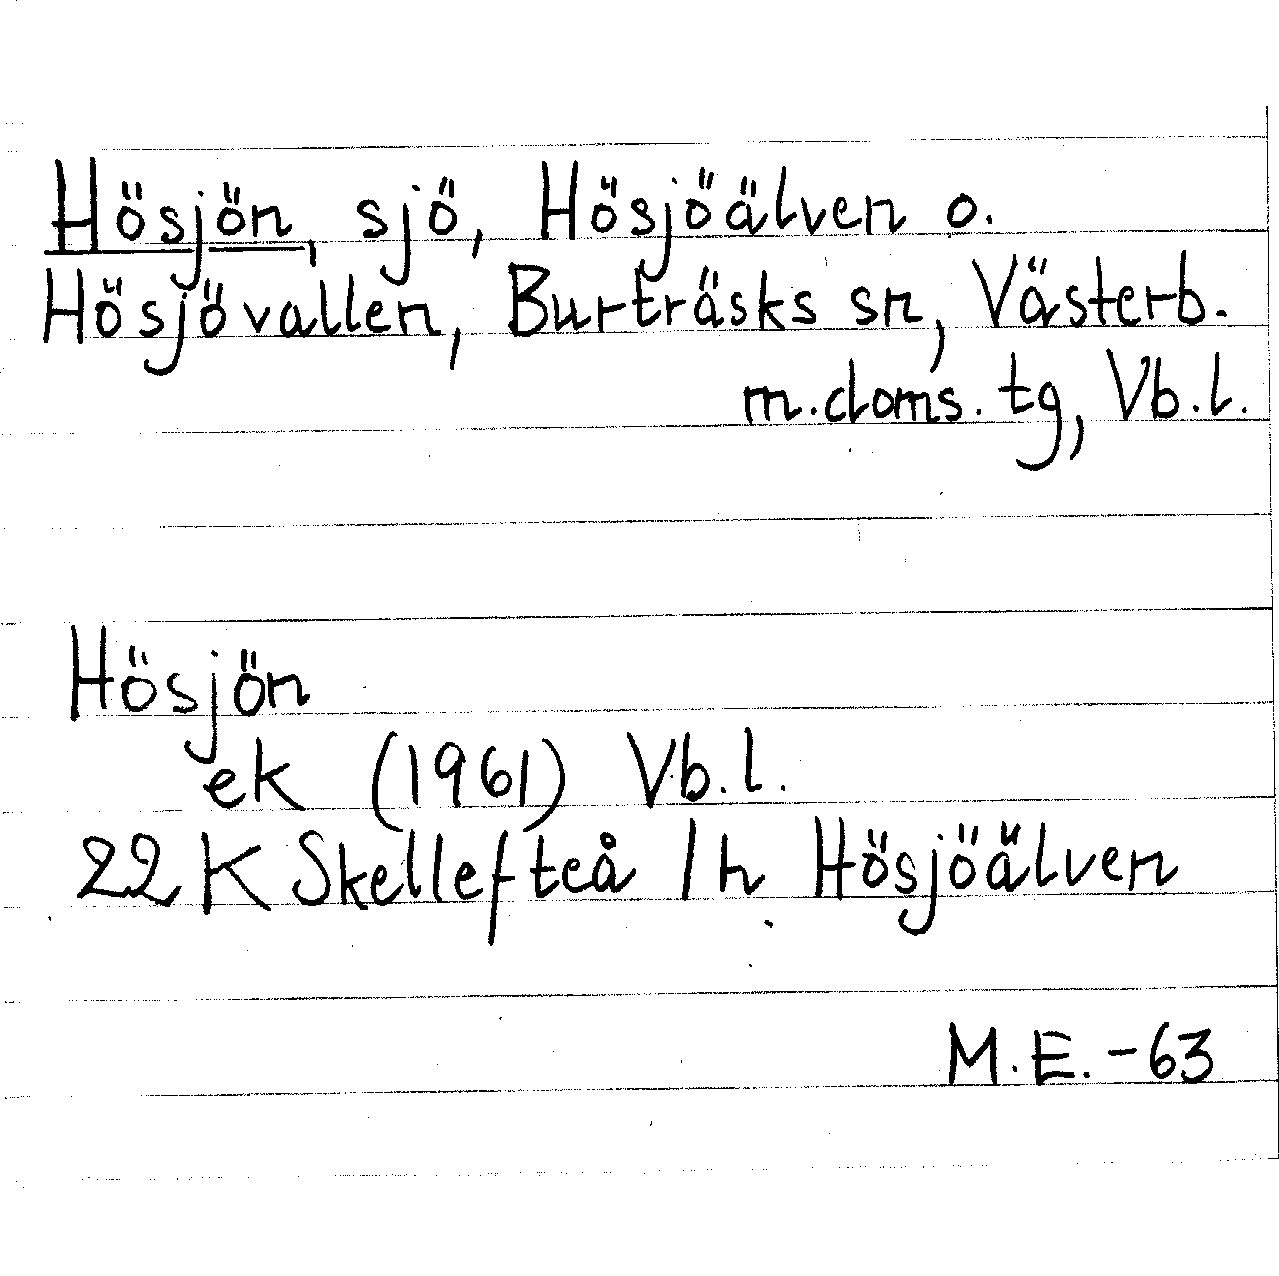 Hösjön, sjö, Hösjöälven o.
Hösjövallen, Burträsks sn, Västerb.
m.doms. tg, Vb.l.
Hösjön
ek (1961) Vb.l.
22 K Skellefteå /h Hösjöälven
M.E. -63